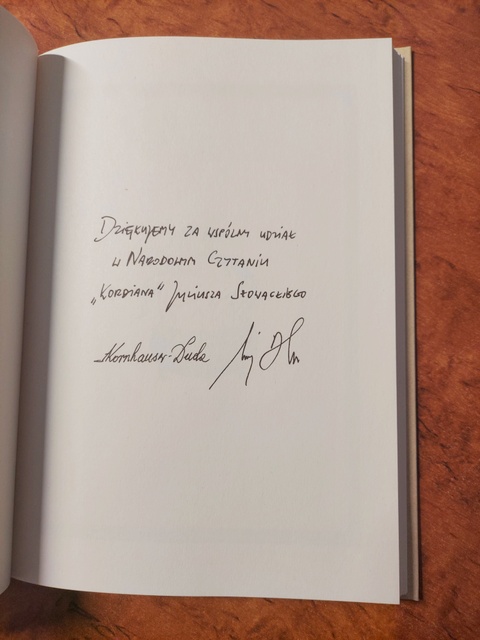 Dziękujemy za wspólny udział
w Narodowym Czytaniu
„Kordiana" Juliusza Słowackiego
Kornhauser-Duda